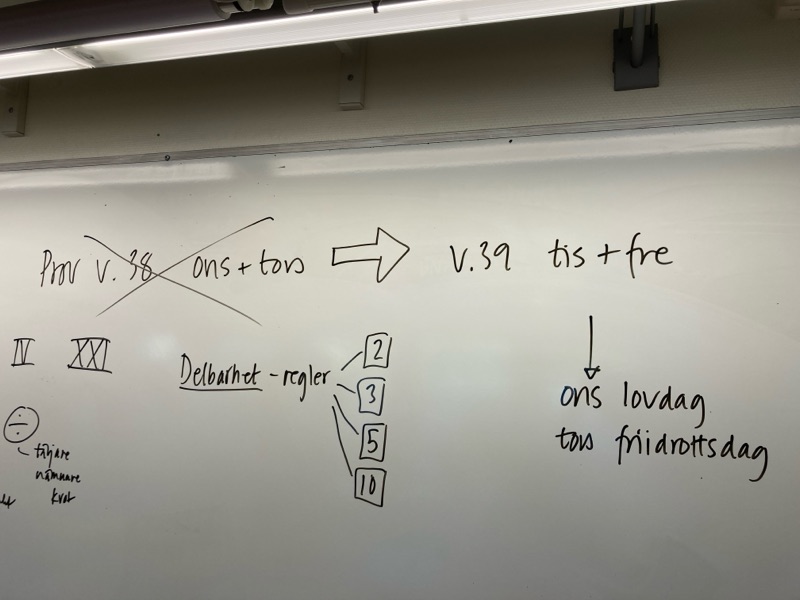 Prov v. 38 ons + tors
v.39 tis + fre
IV XXI
Delbarhet - regler
2
3
5
10
÷
täljare
nämnare
kvot
ons lovdag
tors friidrottsdag